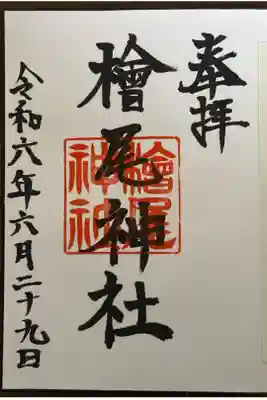 奉拝
檜尾神社
令和六年六月二十九日